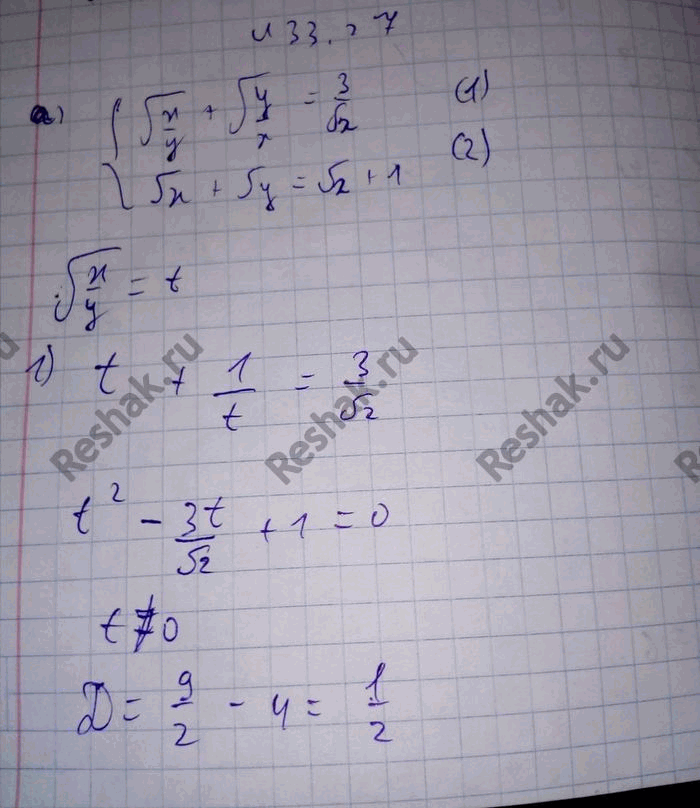 и 33.27
а) { √(x/y) + √(y/x) = 3/√2 (1)
√x + √y = √2 + 1 (2)
√(x/y) = t
1) t + 1/t = 3/√2
t² - 3t/√2 + 1 = 0
t ≠ 0
D = 9/2 - 4 = 1/2
Reshak.ru Reshak.ru Reshak.ru